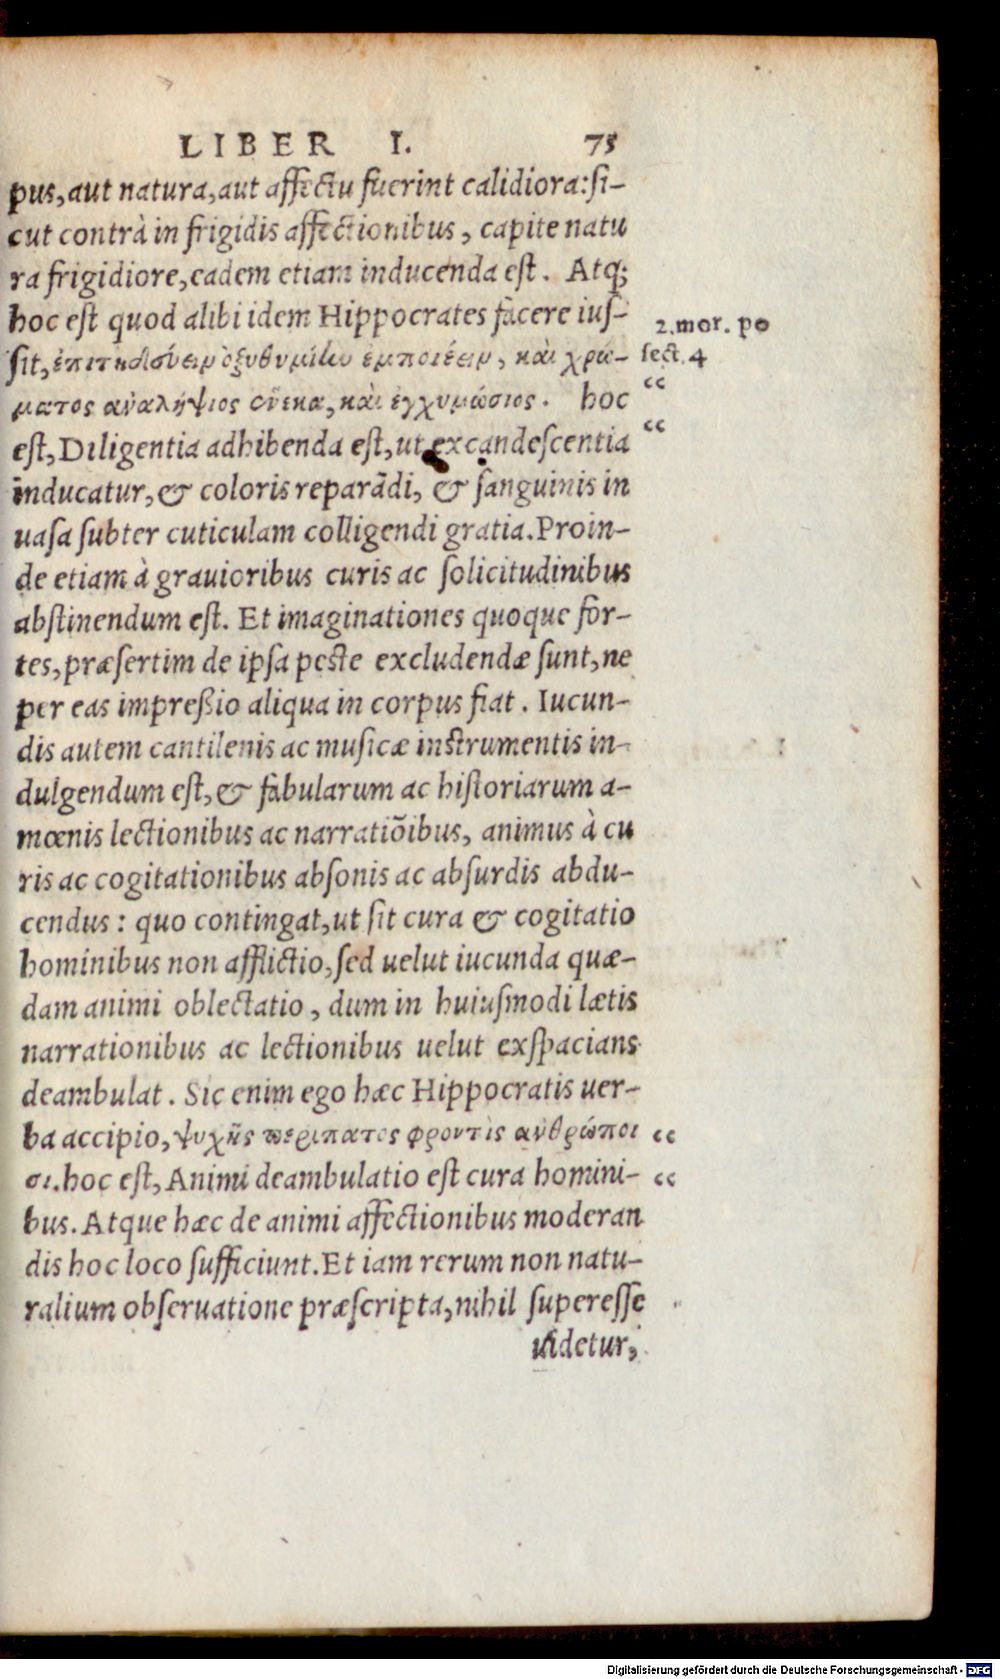 LIBER I. 75
pus, aut natura, aut affectu fuerint calidiora: si-
cut contrà in frigidis affectionibus, capite natu
ra frigidiore, eadem etiam inducenda est. Atq;
hoc est quod alibi idem Hippocrates facere ius-
2. mor. po
sit, ἐπιτηδεύειν ὀξυθυμίην ἐμποιέειν, καὶ χρώ-
sect. 4
ματος ἀναλήψιος οὕνεκα, καὶ ἐγχυμώσιος. hoc
“
est, Diligentia adhibenda est, ut excandescentia
“
inducatur, & coloris reparādi, & sanguinis in
uasa subter cuticulam colligendi gratia. Proin-
de etiam à grauioribus curis ac solicitudinibus
abstinendum est. Et imaginationes quoque for-
tes, præsertim de ipsa peste excludendæ sunt, ne
per eas impreßio aliqua in corpus fiat. Iucun-
dis autem cantilenis ac musicæ instrumentis in-
dulgendum est, & fabularum ac historiarum a-
mœnis lectionibus ac narratiōibus, animus à cu
ris ac cogitationibus absonis ac absurdis abdu-
cendus: quo contingat, ut sit cura & cogitatio
hominibus non afflictio, sed uelut iucunda quæ-
dam animi oblectatio, dum in huiusmodi lætis
narrationibus ac lectionibus uelut exspacians
deambulat. Sic enim ego hæc Hippocratis uer-
ba accipio, ψυχῆς περίπατος φροντὶς ἀνθρώποι “
σι. hoc est, Animi deambulatio est cura homini- “
bus. Atque hæc de animi affectionibus moderan
dis hoc loco sufficiunt. Et iam rerum non natu-
ralium obseruatione præscripta, nihil superesse
uidetur,
Digitalisierung gefördert durch die Deutsche Forschungsgemeinschaft - DFG